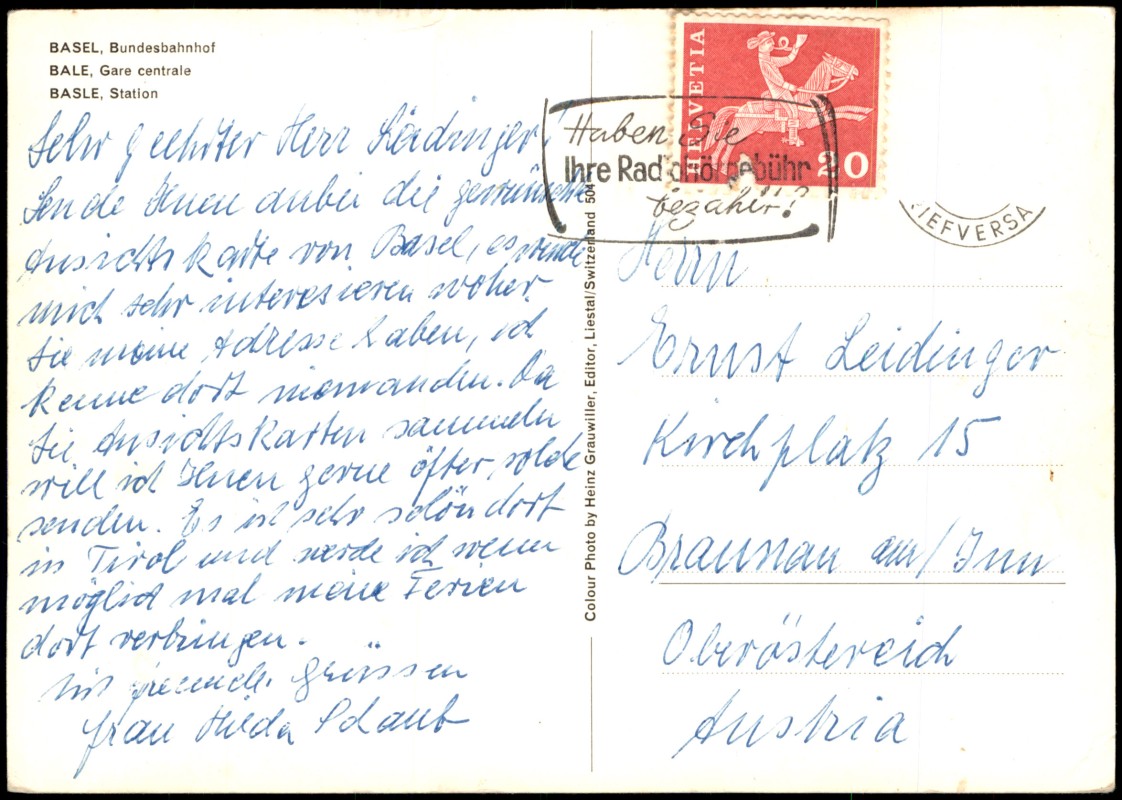 BASEL, Bundesbahnhof
BALE, Gare centrale
BASLE, Station
Sehr geehrter Herr Leidinger!
Sende Ihnen anbei die gewünschte
Ansichtskarte von Basel, es würde
mich sehr interesieren woher
Sie meine Adresse haben, ich
kenne dort niemanden. Da
Sie Ansichtskarten sammeln
will ich Ihnen gerne öfter solche
senden. Es ist sehr schön dort
in Tirol und werde ich wenn
möglich mal meine Ferien
dort verbringen.
Mit freundl. Grüssen
Frau Hilda Schaub
Colour Photo by Heinz Grauwiller, Editor, Liestal/Switzerland 504
HELVETIA
20
Haben Sie
Ihre Radiohörgebühr
bezahlt?
IEFVERSA
Herrn
Ernst Leidinger
Kirchplatz 15
Braunau am/Inn
Oberöstereich
Austria